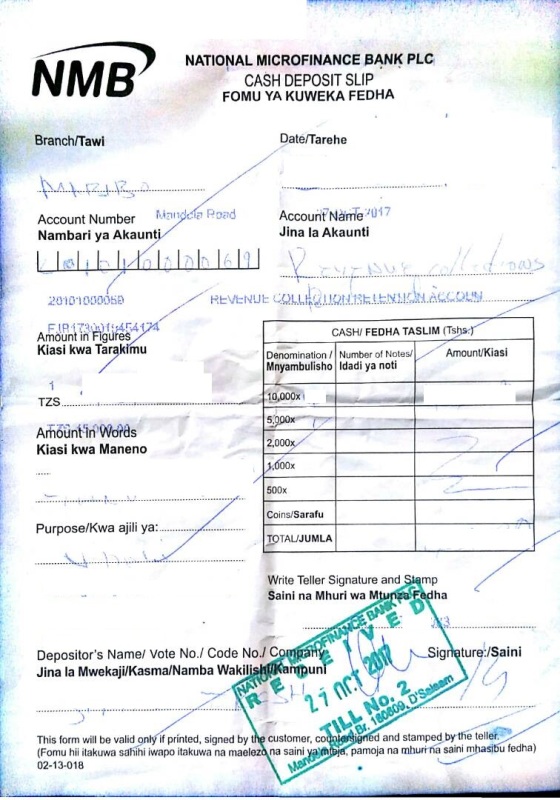 NMB
NATIONAL MICROFINANCE BANK PLC
CASH DEPOSIT SLIP
FOMU YA KUWEKA FEDHA
Branch/Tawi
Date/Tarehe
MABIBO
Account Number
Mandela Road
Nambari ya Akaunti
Account Name
2017
Jina la Akaunti
Revenue collections
20101000069
REVENUE COLLECTION RETENTION ACCOUN
Amount in Figures
Kiasi kwa Tarakimu
1
TZS
Amount in Words
Kiasi kwa Maneno
CASH/ FEDHA TASLIM (Tshs.)
Denomination / Mnyambulisho
Number of Notes/ Idadi ya noti
Amount/Kiasi
10,000x
5,000x
2,000x
1,000x
500x
Coins/Sarafu
TOTAL/JUMLA
Purpose/Kwa ajili ya:
Write Teller Signature and Stamp
Saini na Mhuri wa Mtunza Fedha
Depositor's Name/ Vote No./ Code No./ Company
Jina la Mwekaji/Kasma/Namba Wakilishi/Kampuni
Signature:/Saini
NATIONAL MICROFINANCE BANK
RECEIVED
27 OCT 2017
TILL No. 2
Mandela Road Br. 160809, D'Salaam
This form will be valid only if printed, signed by the customer, countersigned and stamped by the teller.
(Fomu hii itakuwa sahihi iwapo itakuwa na maelezo na saini ya mteja, pamoja na mhuri na saini mhasibu fedha)
02-13-018